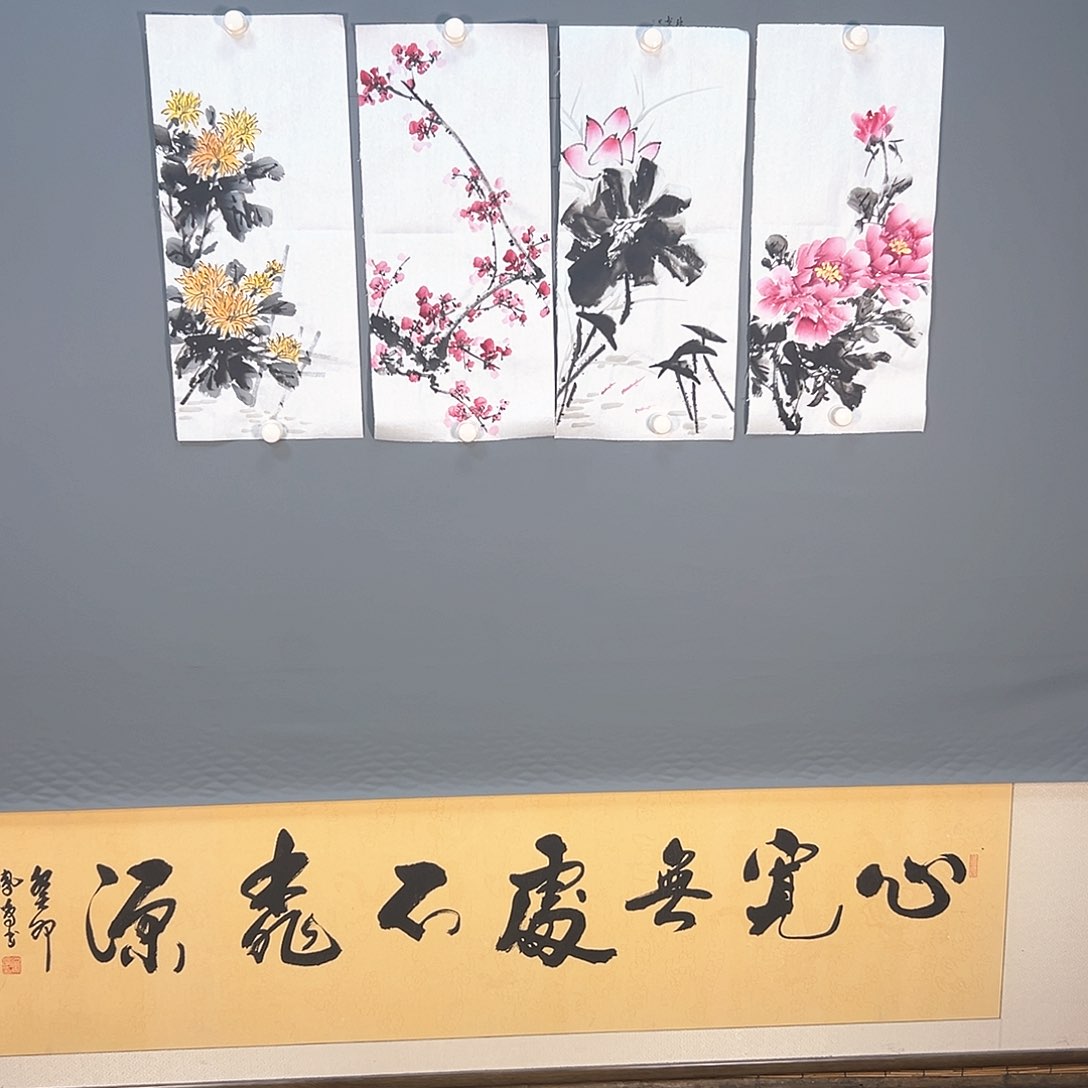 心寬無處不桃源
癸卯